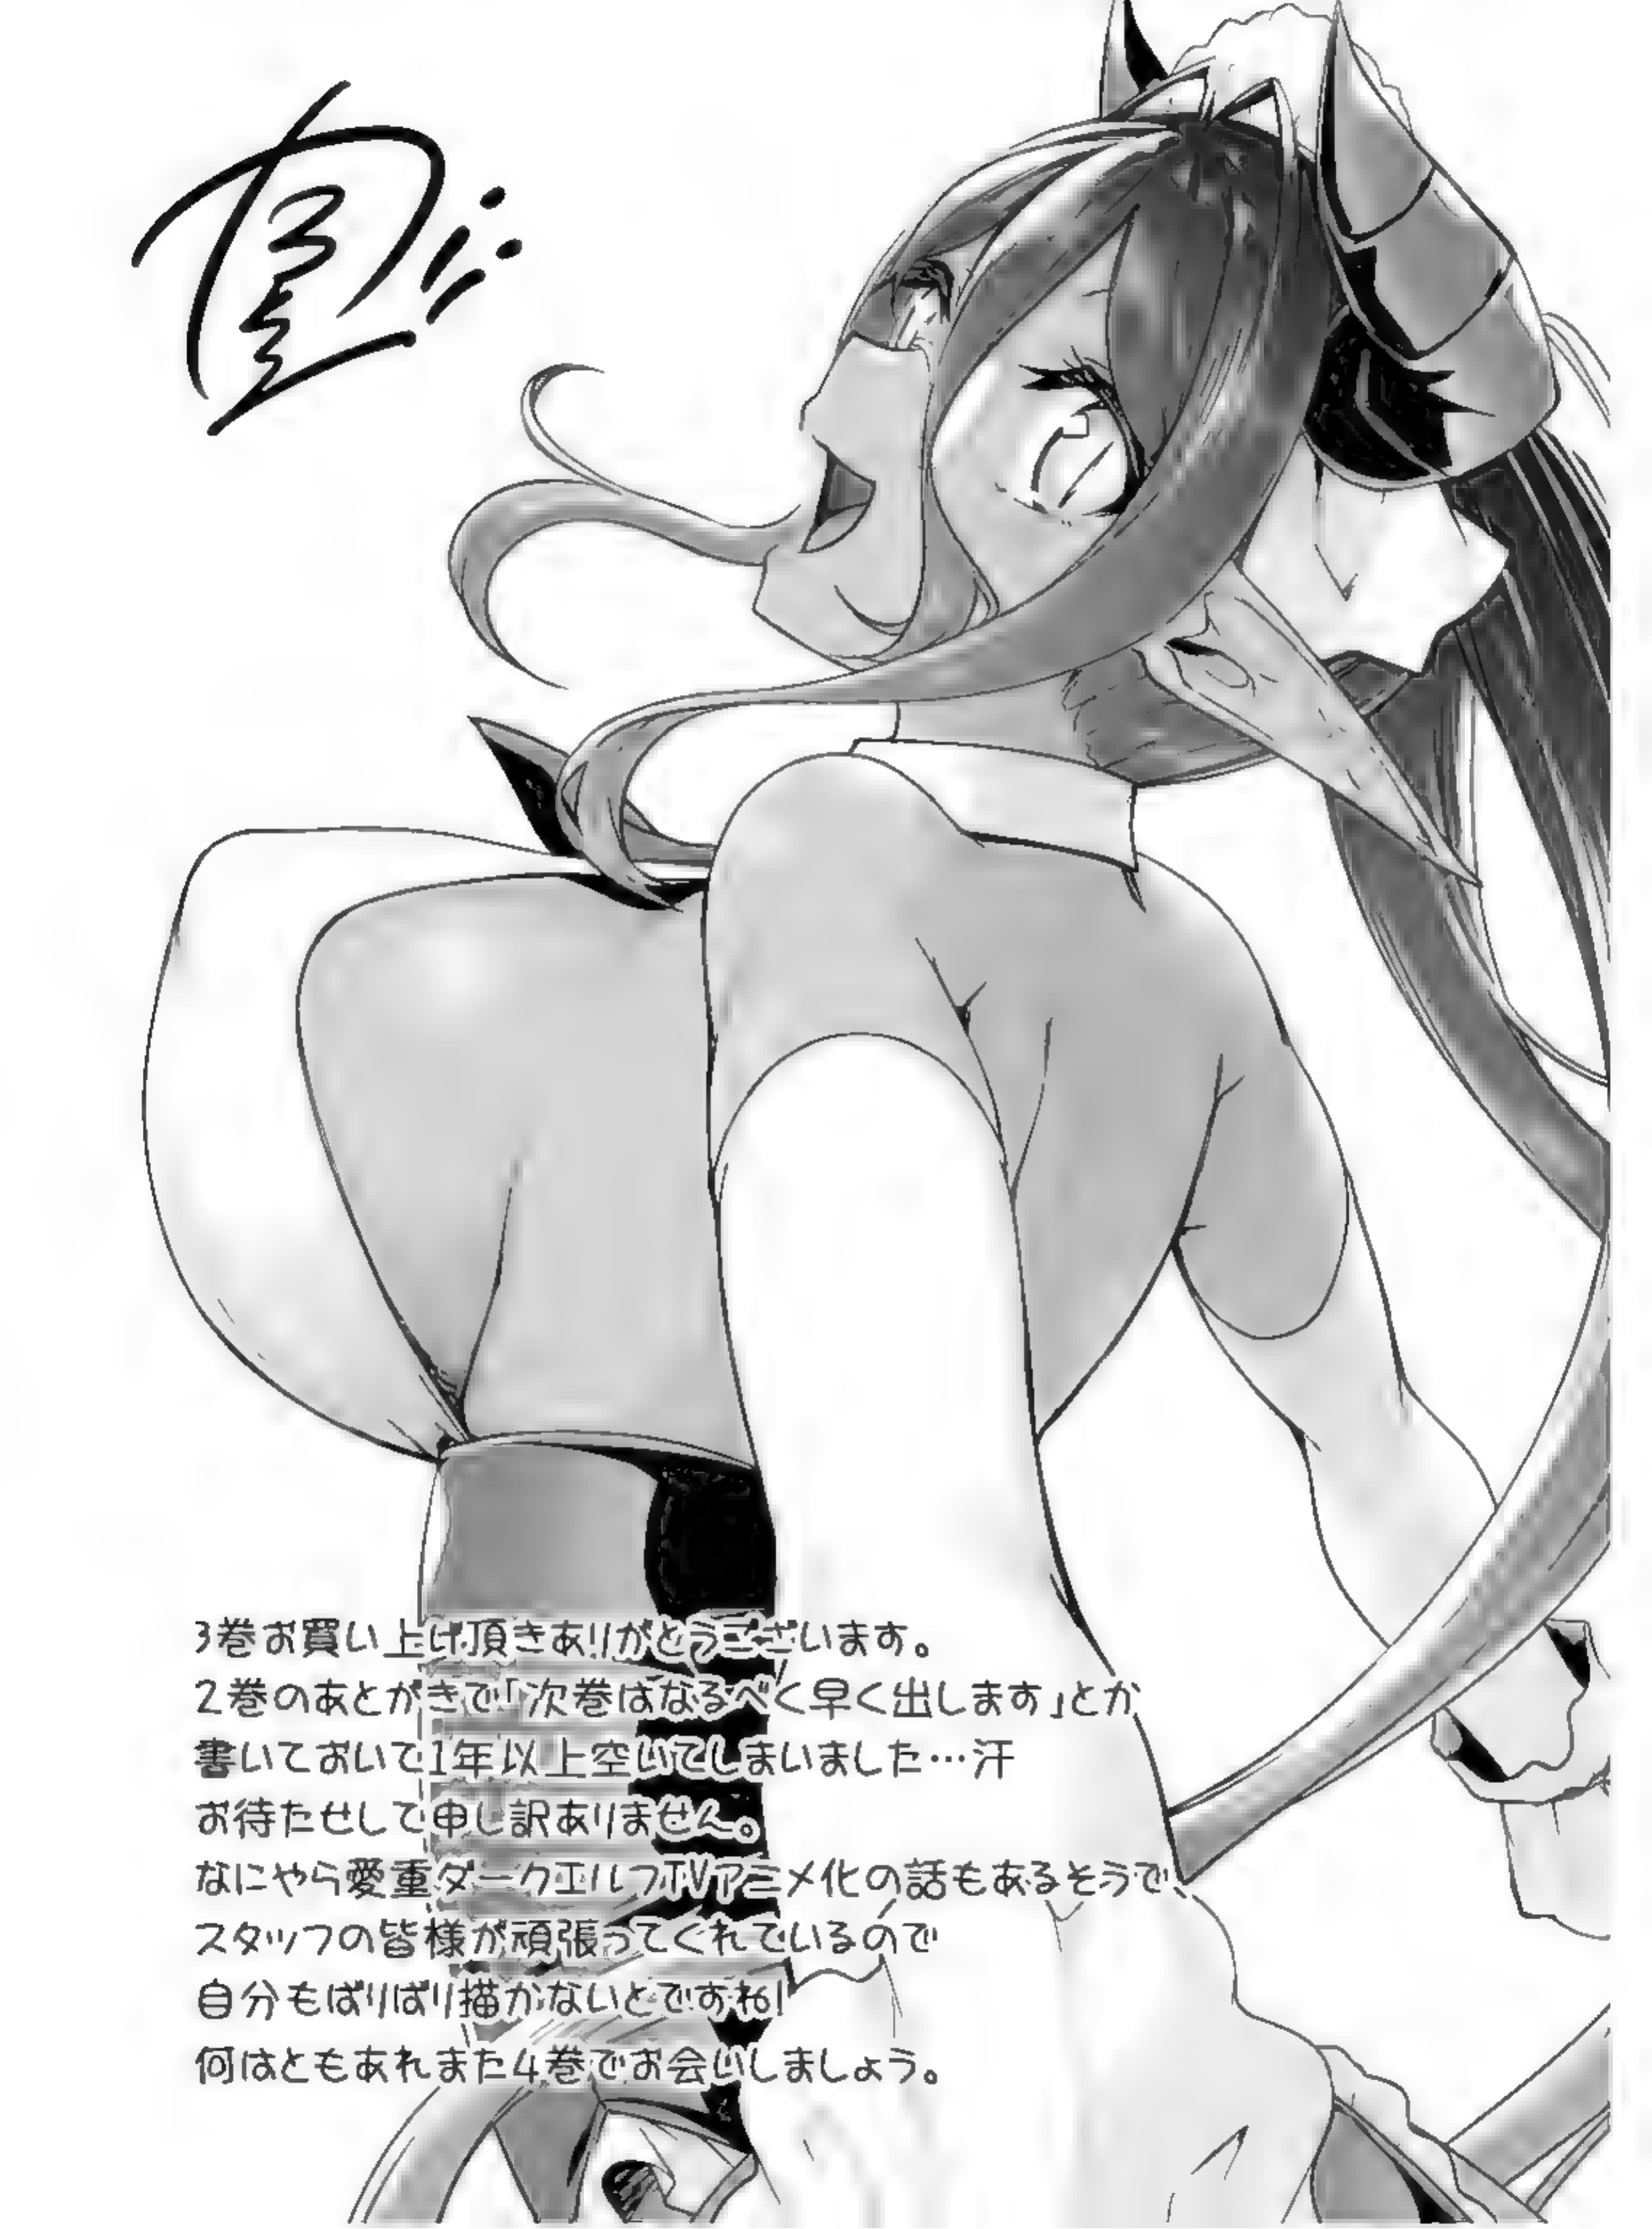 3巻お買い上げ頂きありがとうございます。
2巻のあとがきで「次巻はなるべく早く出します」とか
書いておいて1年以上空いてしまいました…汗
お待たせして申し訳ありません。
なにやら愛重ダークエルフTVアニメ化の話もあるそうで、
スタッフの皆様が頑張ってくれているので
自分もばりばり描かないとですね!
何はともあれまた4巻でお会いしましょう。